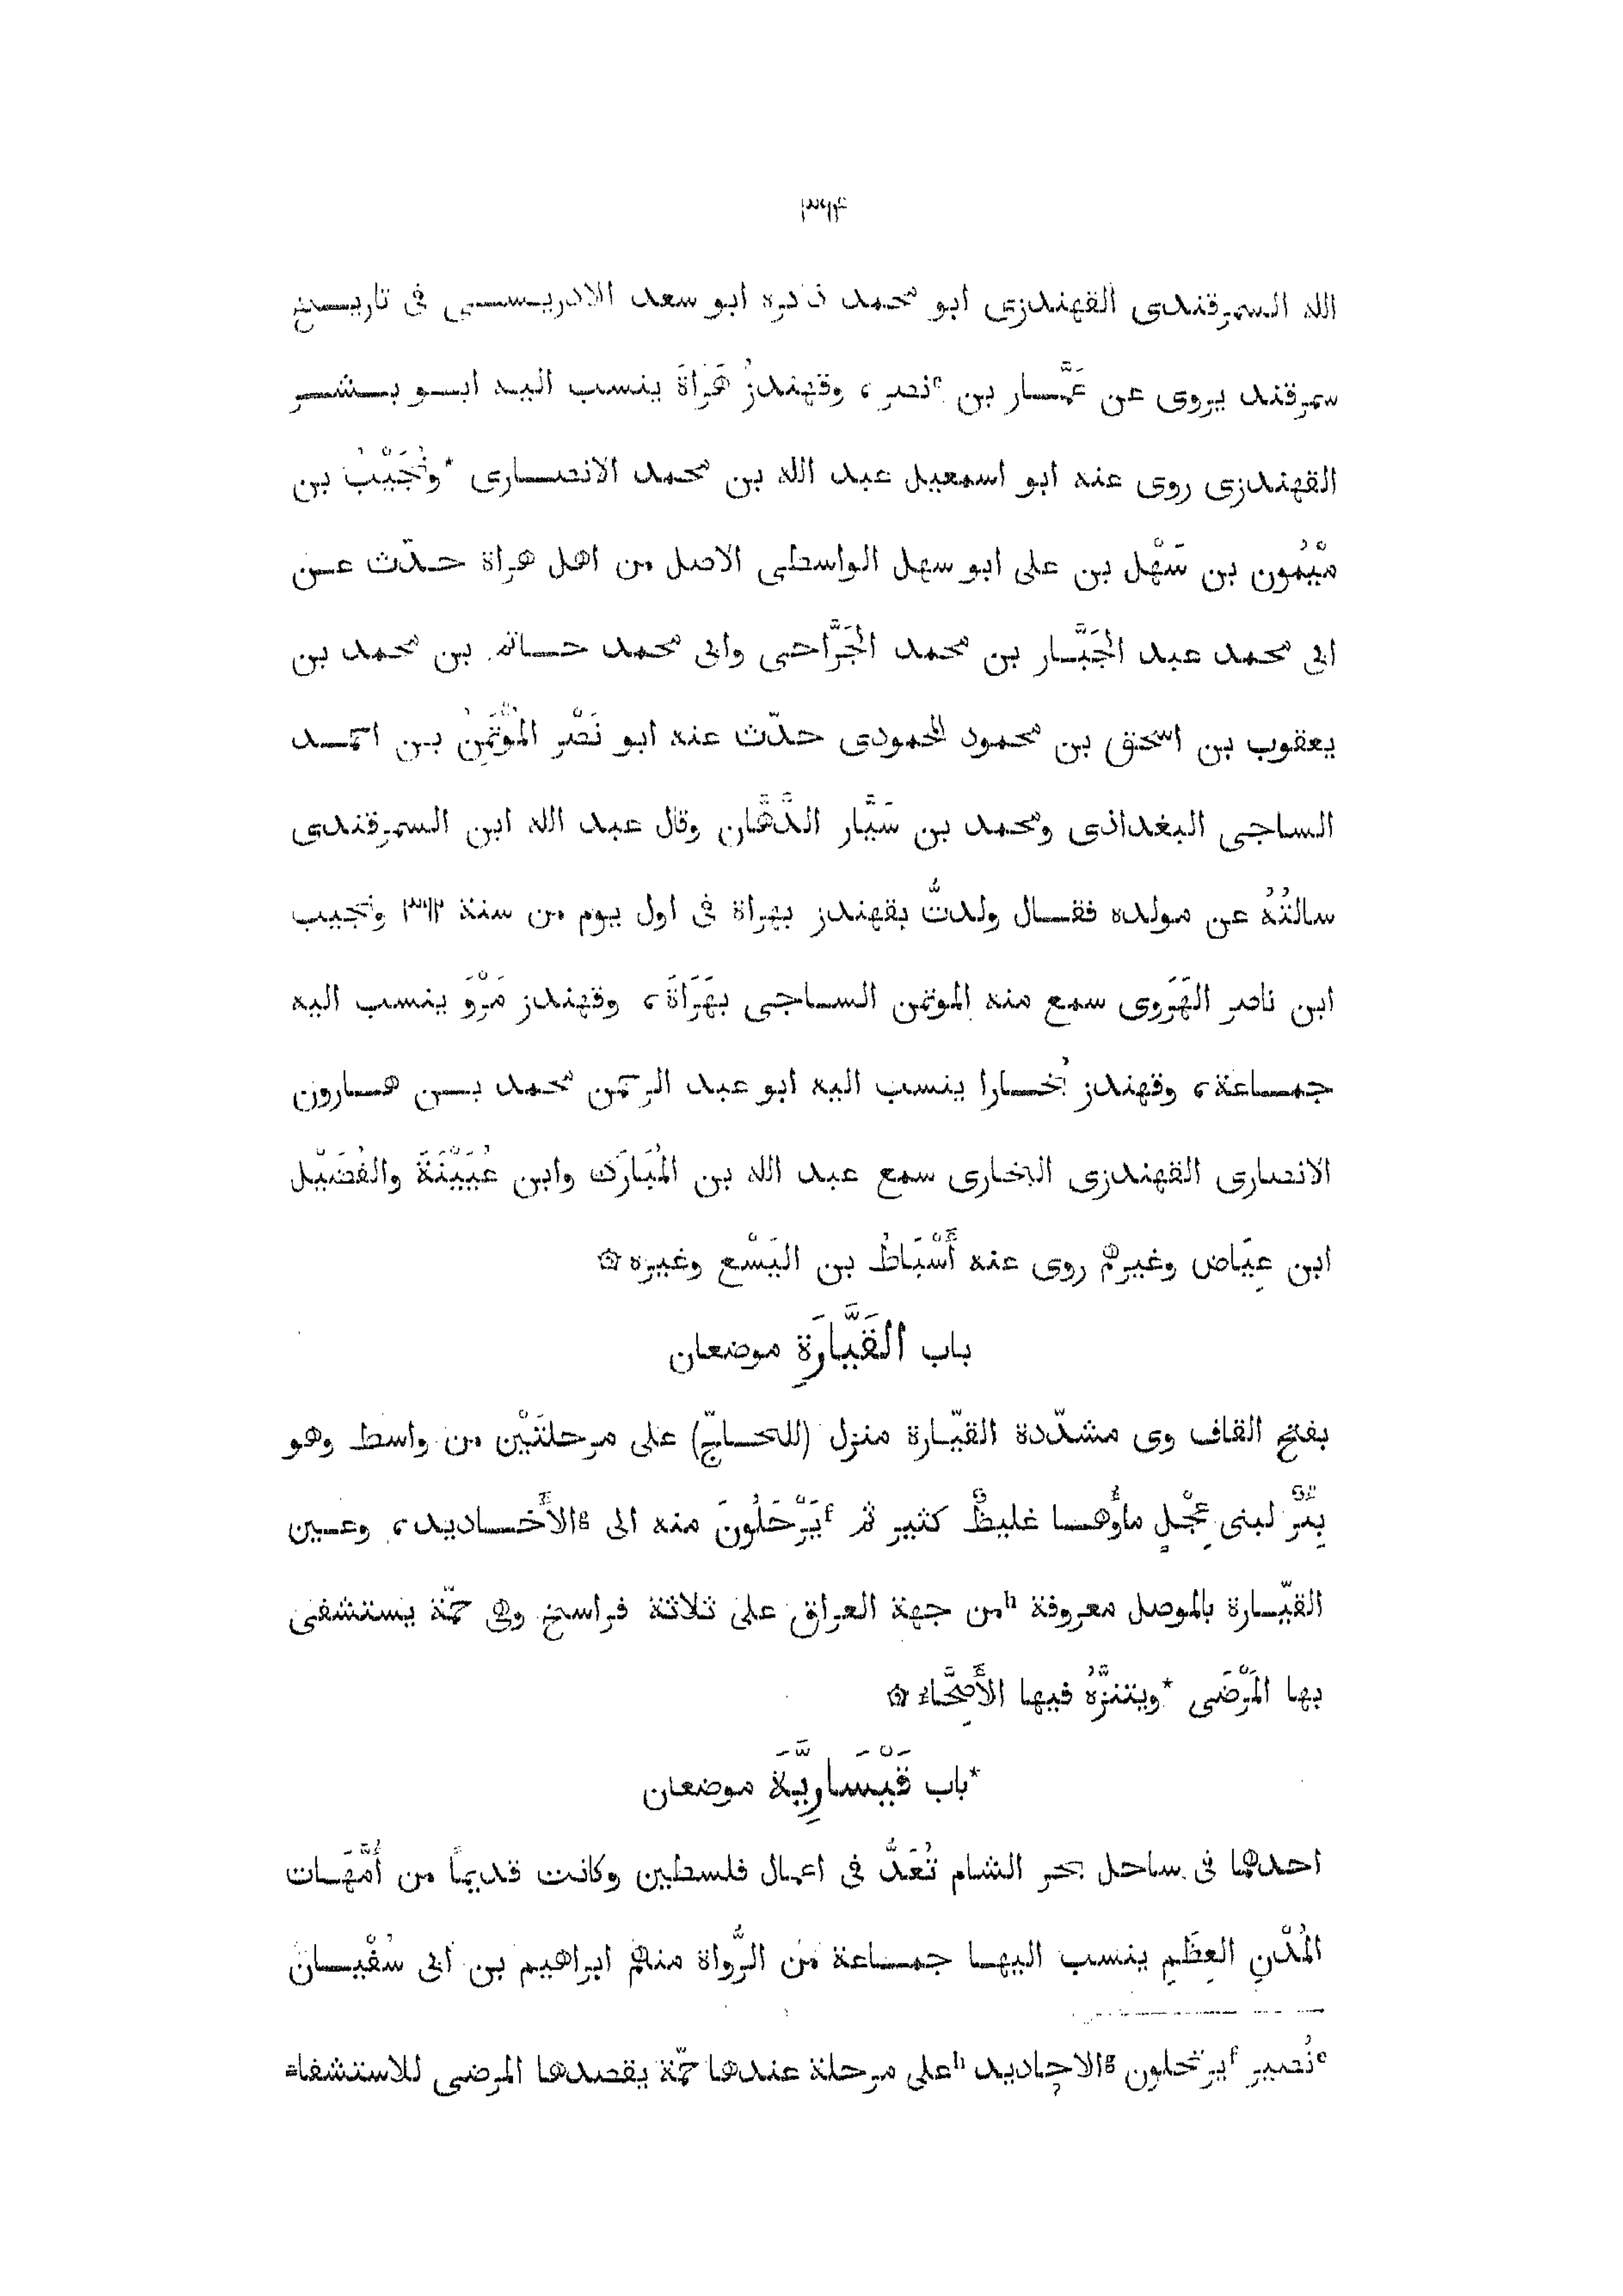 ٣٦٤
الله السمرقندى القهندزى ابو محمد ذكره ابو سعد الادريسى فى تاريخ
سمرقند يروى عن عَمَّار بن ᵉنصر ، وقهندزُ هَرَاةَ ينسب اليه ابو بشر
القهندزى روى عنه ابو اسمعيل عبد الله بن محمد الانصارى *ونُجَيْبُ بن
مَيْمُون بن سَهْل بن على ابو سهل الواسطى الاصل من اهل هراة حدّث عن
ابى محمد عبد الجَبَّار بن محمد الجَرَّاحى وابى محمد حاتم بن محمد بن
يعقوب بن اسحق بن محمود المحمودى حدّث عنه ابو نَصْر المُؤْتَمَنُ بن احمد
الساجى البغداذى ومحمد بن سَيَّار الدَّهَّان وقال عبد الله ابن السمرقندى
سالتُهُ عن مولده فقال ولدتُّ بقهندز بهراة فى اول يوم من سنة ٣٩٢ ونجيب
ابن ناصر الهَرَوى سمع منه الموتمن الساجى بهَرَاةَ ، وقهندز مَرْوَ ينسب اليه
جماعة ، وقهندز بُخارا ينسب اليه ابو عبد الرحمن محمد بن هارون
الانصارى القهندزى البخارى سمع عبد الله بن المُبَارَك وابن عُيَيْنَةَ والفُضَيْل
ابن عِيَاض وغيرهم روى عنه أَسْبَاطُ بن اليَسْع وغيره ۞
باب القَيَّارَةِ موضعان
بفتح القاف وى مشدّدة القيّارة منزل (للحاجّ) على مرحلتَيْن من واسط وهو
بِئْرٌ لبنى عِجْلٍ ماؤُها غليظٌ كثير ثم ᶠيَرْحَلُونَ منه الى ᵍالأَخاديد ، وعين
القيّارة بالموصل معروفة ʰمن جهة العراق على ثلاثة فراسخ وهى حمّة يستشفى
بها المَرْضَى *ويتنزَّهُ فيها الأَصِحَّاء ۞
*باب قَيْسَارِيَّةَ موضعان
احدهما فى ساحل بحر الشام تُعَدُّ فى اعمال فلسطين وكانت قديمًا من أُمَّهَات
المُدْنِ العِظَمِ ينسب اليها جماعة من الرُّواة منهم ابراهيم بن ابى سُفْيان
ᵉنُصير ᶠيرتحلون ᵍالاجاديد ʰعلى مرحلة عندها حمّة يقصدها المرضى للاستشفاء